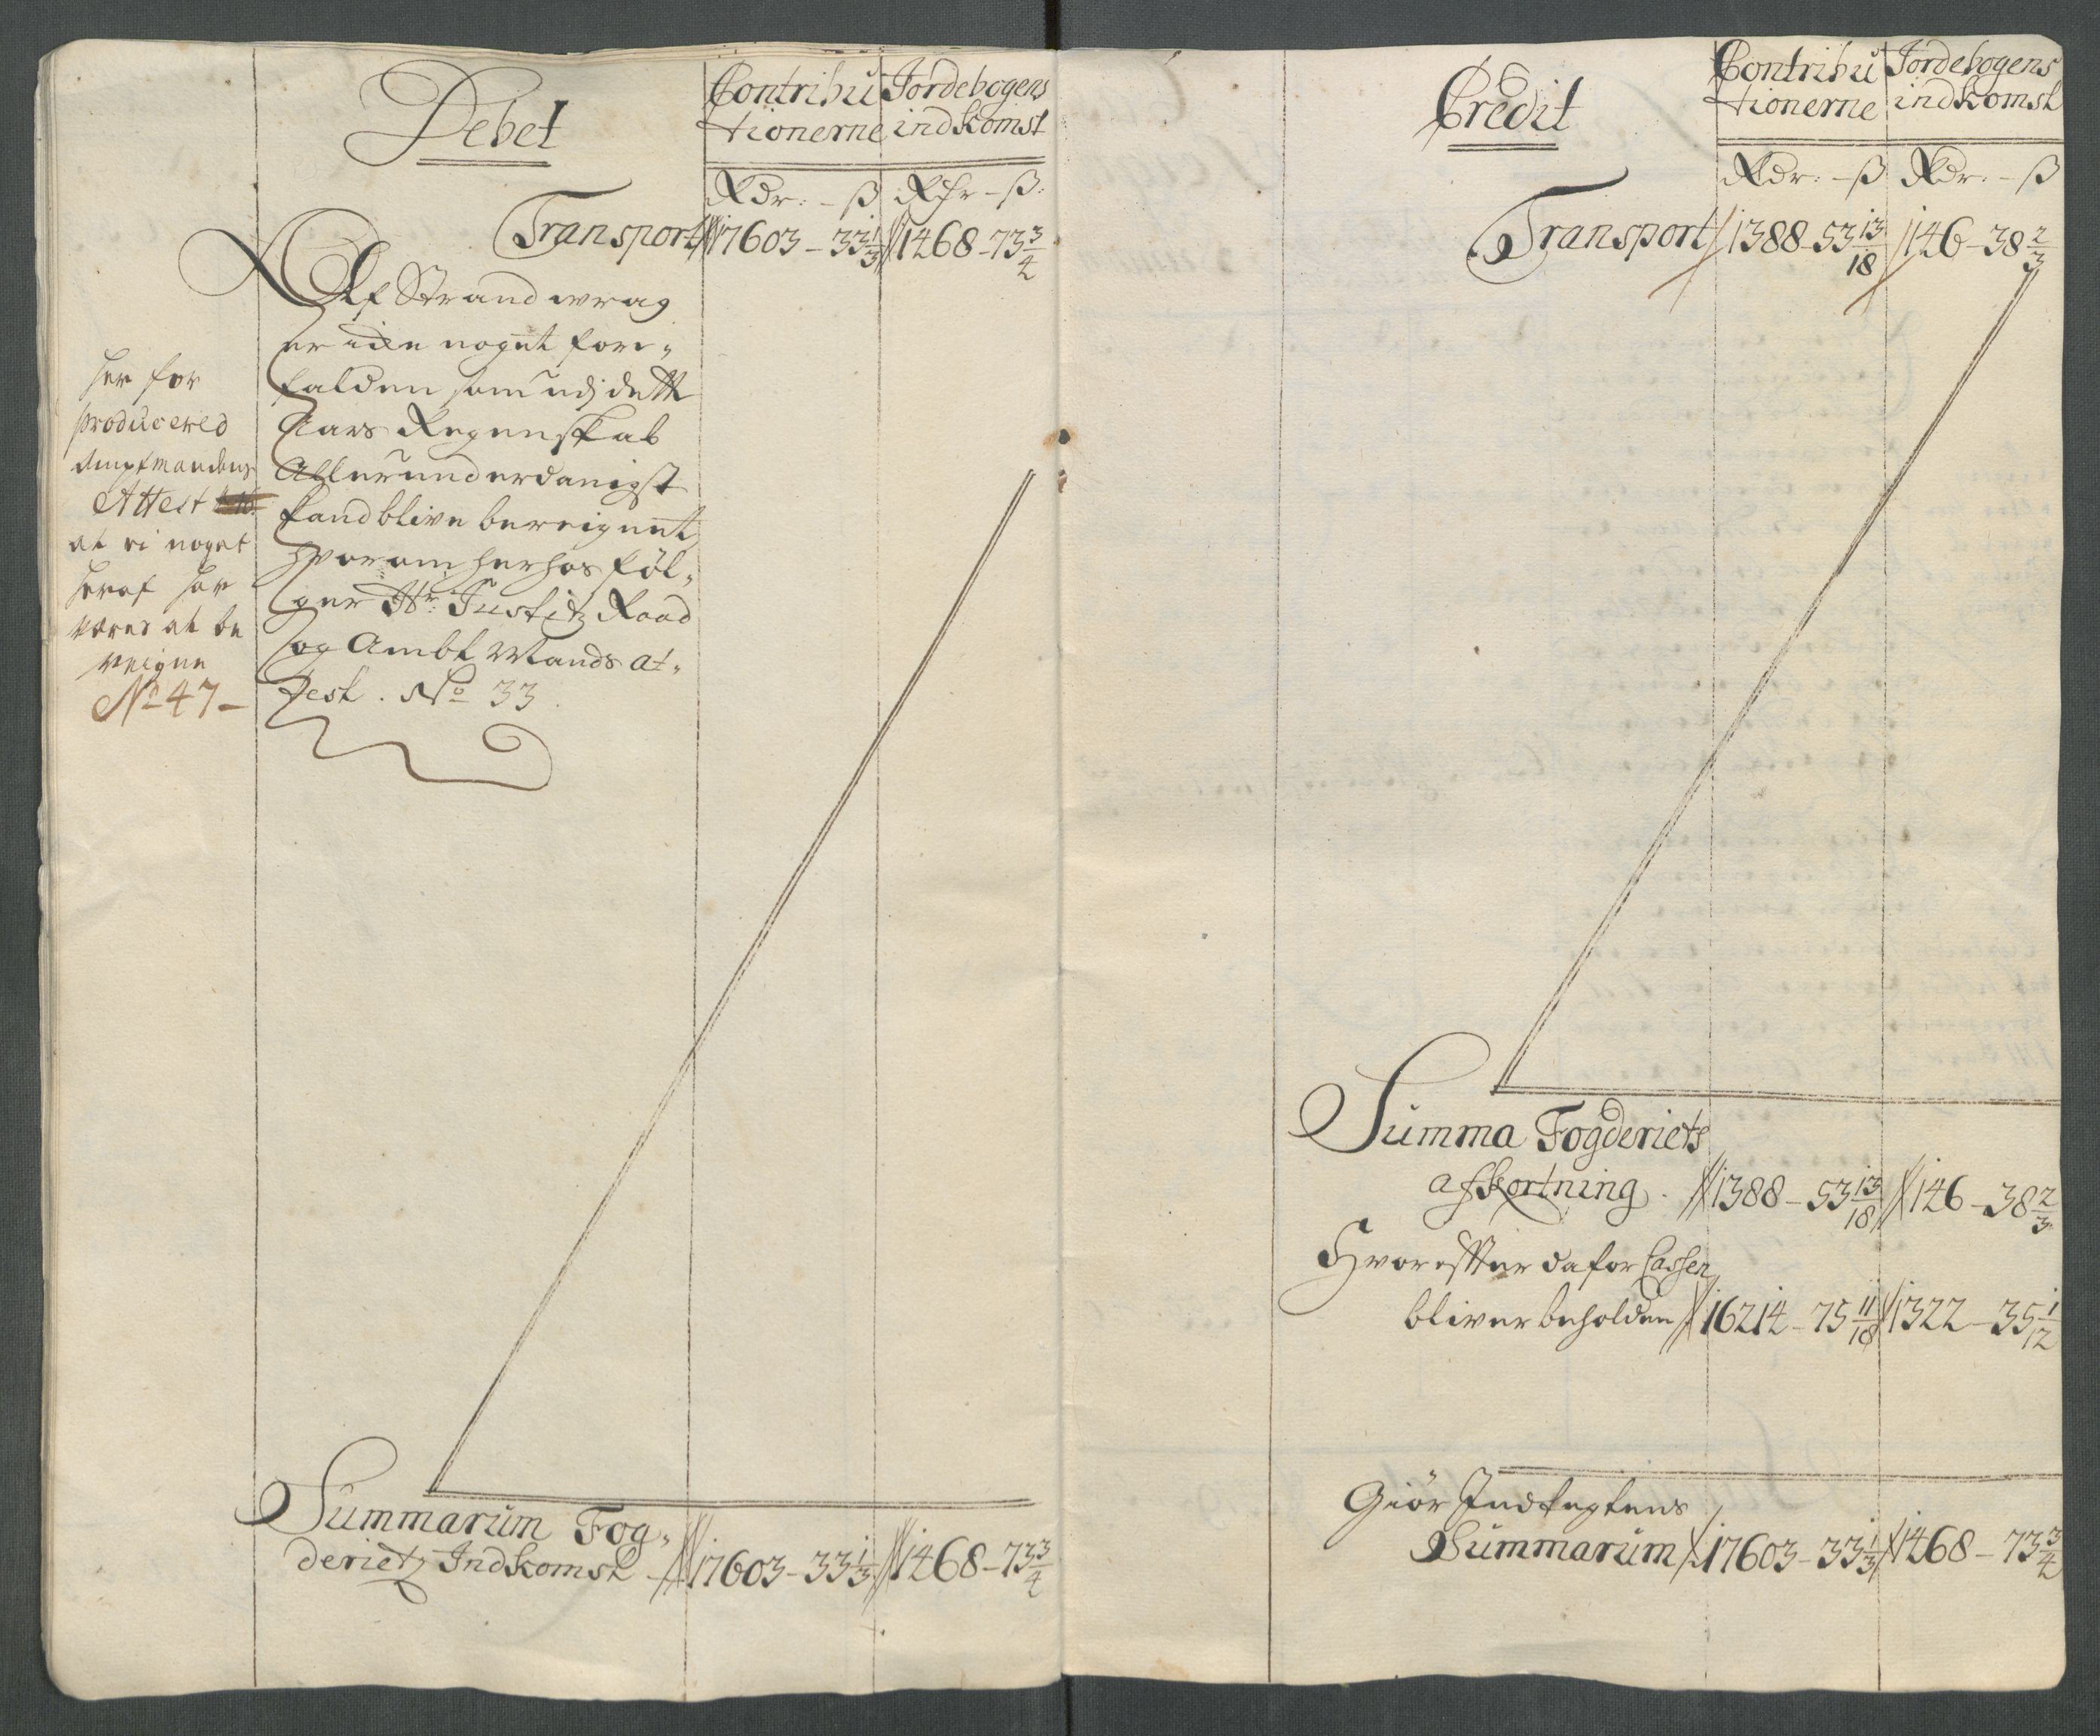 Debet
Contribu Jordebogens
tionerne indkomst
Rdr: - ß Rdr - ß:
Transport 17603 - 33 1/3 1468 - 73 3/4
Af Strandwrag
er icke noget fore-
falden som udj dette
Aars Regenskab
Allerunderdanigst
kand blive bereignet
hvorom herhos føl-
ger Hr: Justitz Raad
og Ambtmands at-
test. No 33.
her for
producered
Amptmandens
Attest
at ei noget
heraf har
været at be
reigne
No 47 -
Summarum Fog-
derietz Indkomst 17603 - 33 1/3 1468 - 73 3/4
Credit
Contribu Jordebogens
tionerne indkomst
Rdr: - ß Rdr: - ß
Transport 1388 - 53 13/18 146 - 38 2/3
Summa Fogderiets
afkortning. 1388 - 53 13/18 146 - 38 2/3
Hvorefter da for Cassen
bliver beholden 16214 - 75 11/18 1322 - 35 1/12
Giør Indtegtens
Summarum 17603 - 33 1/3 1468 - 73 3/4